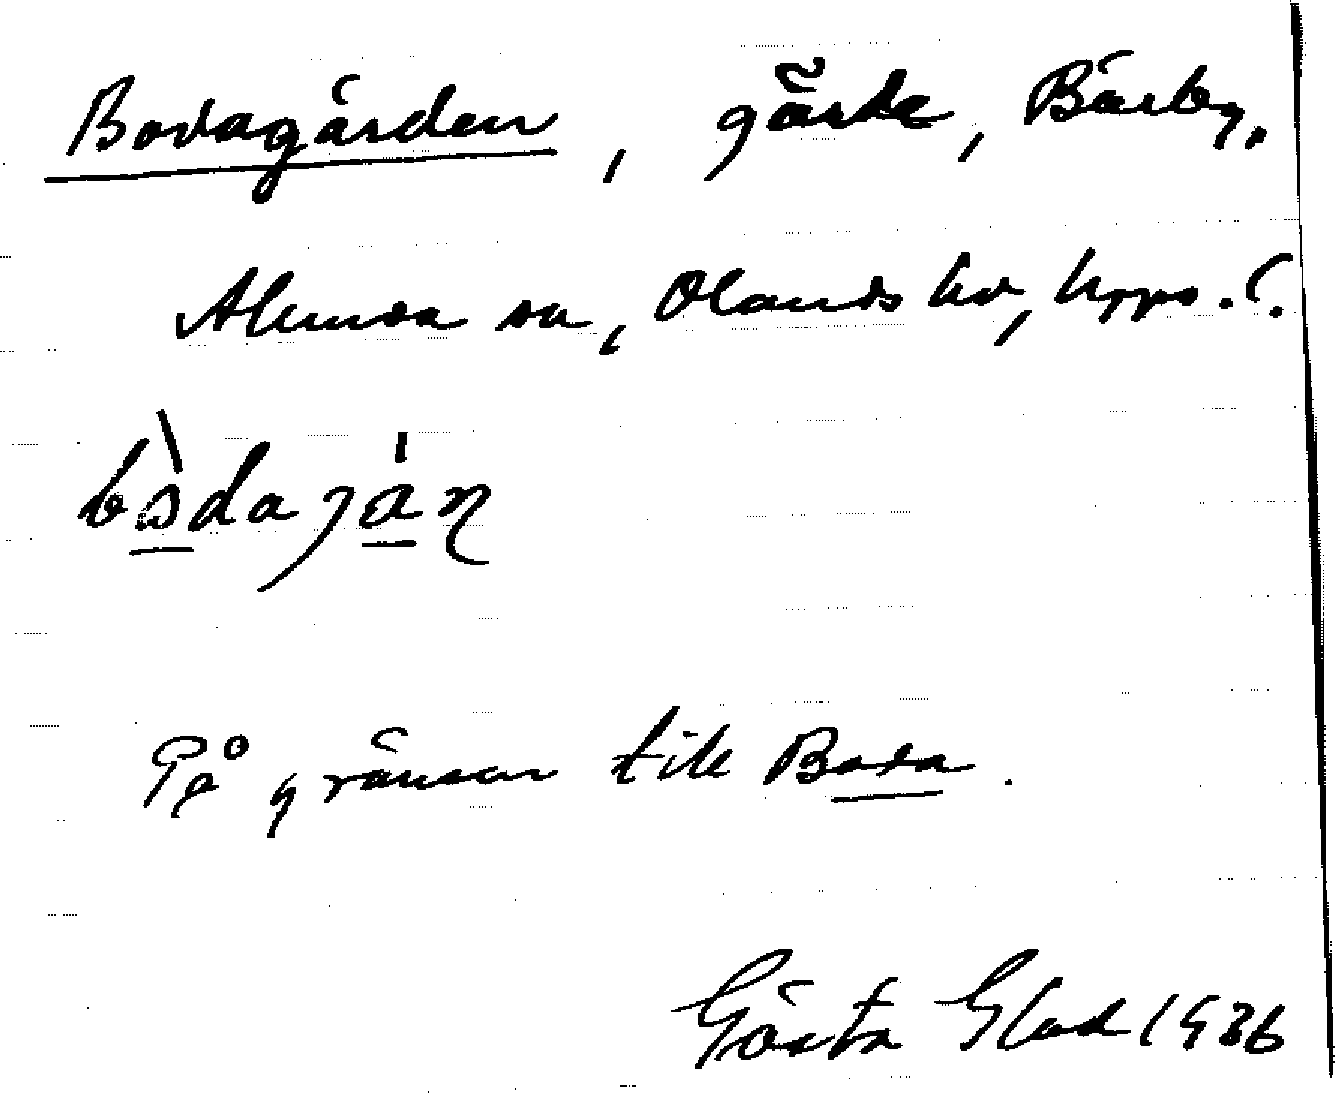 Bodagärden, gärde, Bärby,
Alunda sn, Olands hd, Upps. l.
bɷ̀dajáɳ
På gränsen till Boda.
Gösta Glad 1936